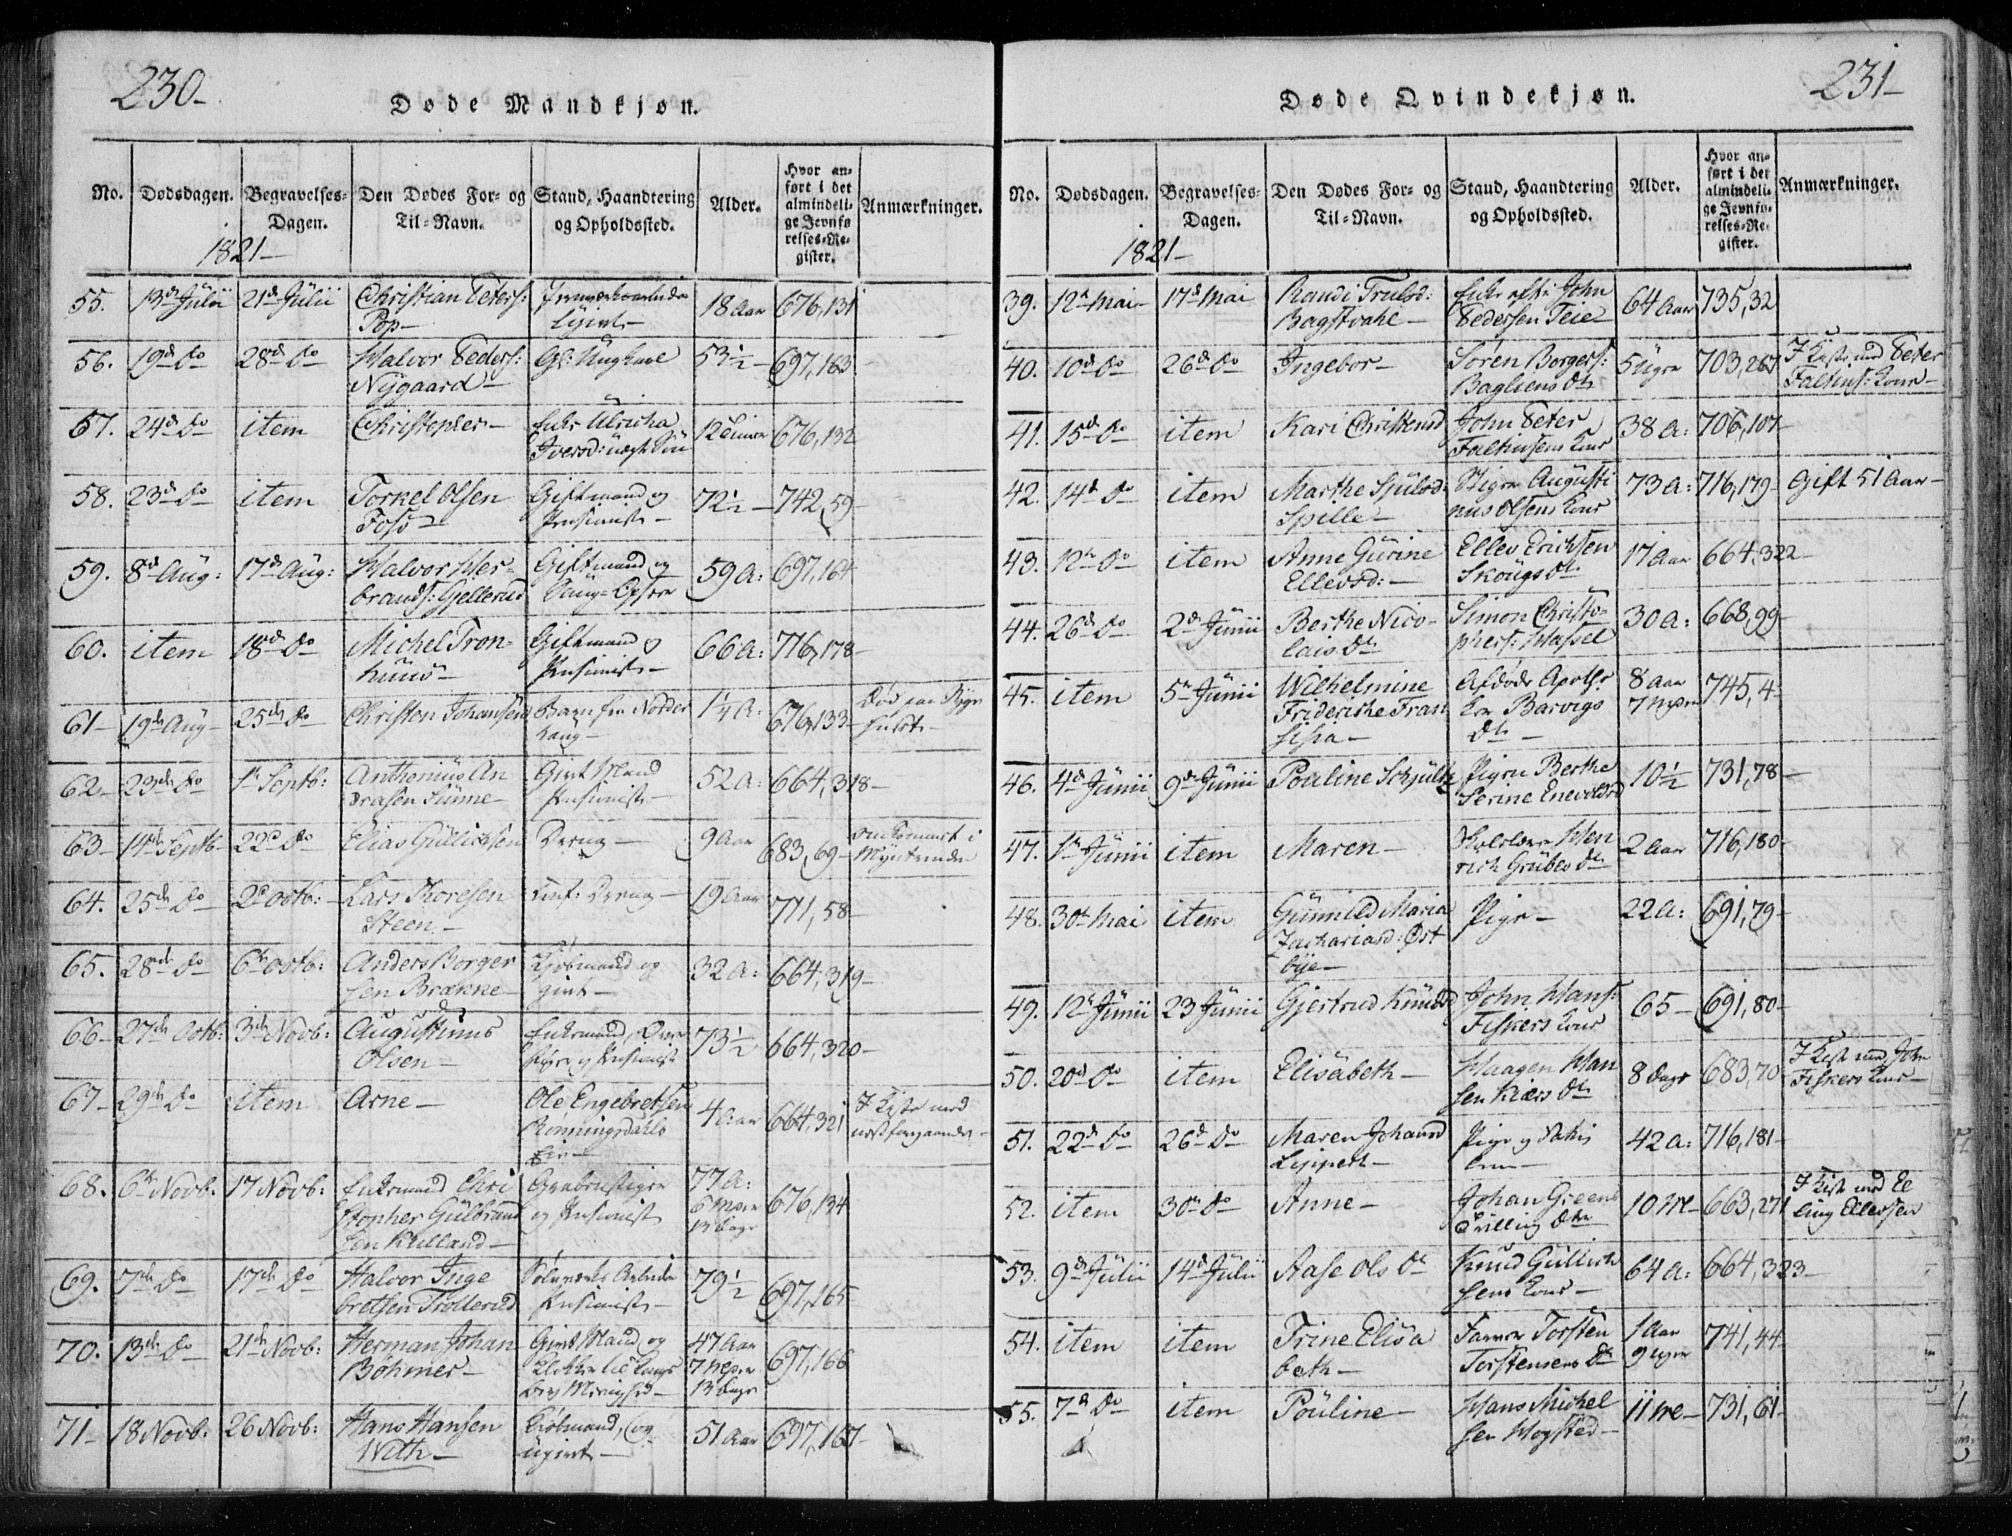 230-
Døde Mandkjøn.
No. Dødsdagen. Begravelses-Dagen. Den Dødes For- og Til-Navn. Stand, Haandtering og Opholdssted. Alder. Hvor anført i det almindelige Jevnførelses-Register. Anmærkninger.
1821-
55. 13de Julii 21de Julii Christian Peters: 18 Aar 676,131
Pop-
56. 19de Do 28de Do Halvor Peders: Gl: 53½- 697,163
Nygaard-
57. 24de Do item Christopher- Enke Ulricha 12 676,132
Iversd:
58. 23de Do item Torkel Olsen Giftmand og 72½- 742,59-
Foss- Pensionist-
59. 8de Aug: 17de Aug: Halvor Her- Giftmand og 59 A: 697,164
brands: Gjellerud
60. item 18de Do Michel Tron- Giftmand og 66 A: 716,178-
huus- Pensionist-
61- 19de Aug- 25de Do Christen Johansen Barn fra Nordre 1¼ A: 676,133- Død paa Syge
62- 23de Do 1te Septb: Anthonius An Givt Mand 52 A: 664,318-
drasen Sünne- Pensionist-
63- 14de Septb- 22de Do Elias Gullichsen Dreng- 9 Aar 683,69- omkommet i
64. 25de Do 2de Octb: Lars Thoresen Dreng- 19 Aar 771,58-
Steen-
65. 28de Do 6te Octb: Anders Borger Kjøbmand og 32 A: 664,319-
sen Brække- givt-
66- 27de Octb: 3de Novb: Augustinus Enkemand, 73½ 664,320-
Olsen- og Pensionist
67- 29de Do item Arne- Ole Engebretsen 4 Aar 664,321 I Kiste med
Rønningsdahls næstforgaaende-
68. 6te Novb: 17 Novb: Enkemand Chri 77 A: 676,134
stopher Gulbrand og Pensionist
sen
69. 7de Do 17de Do Halvor Inge Sølvverks Arbeider 79½ 697,165
bretsen Trollerud Pensionist-
70. 13de Do 21de Novb: Herman Johan Givt Mand og 47 Aar 697,166
Bøhmer- Klokker til Kongs 7 Mdr
13 Dage
71- 18 Novb: 26 Novb: Hans Hansen Kiøbmand, og 51 Aar 697,167-
Weth- ugivt-
231-
Døde Qvindekjøn.
No. Dødsdagen. Begravelses-Dagen. Den Dødes For- og Til-Navn. Stand, Haandtering og Opholdssted. Alder. Hvor anført i det almindelige Jevnførelses-Register. Anmærkninger.
1821-
39. 12te Mai- 17de Mai Randi Trulsd: Enke efter John 64 Aar 735,32
Pedersen Teie
40. 10de Do 26de Do Ingebor- Søren Borgers: 5 Uger 703,267 I Kiste med Peter
Bagliens Dtr Faltins: Kone-
41. 15de Do item Kari Christensd John Peter 38 A: 706,107-
Faltinsens Kone
42. 14de Do item Marthe Sjulsd: Stiger Augusti 73 A: 716,179- Gift 51 Aar-
Spille- nus Olsens Kone
43. 12te Do item Anne Gurine Ellev Erichsen 17 Aar 664,322-
Ellevsd:- Skougs Dtr
44. 26de Do 2de Junii Berthe Nico- Simon Christo- 30 A: 668,99-
lais Dtr phers: Hassel
45. item 5te Junii Wilhelmine Afdøde Apothe 8 Aar 745,4-
Friderikke Fran ker Barvigs 7 Mdr
siska- Dtr-
46. 4de Junii 9de Junii Pouline Schjultz Pigen Berthe 10½ 731,78-
Serine Enevoldsd
47. 1te Junii item Maren- Hen 2 Aar 716,180-
rich Grubes Dtr
48. 30te Mai item Gunnild Maria Pige- 22 A: 691,79-
Zachariasd: Øst
bye-
49. 12te Junii 23 Junii Gjertrud Knudsd John Hans: 65- 691,80-
Fiskers Kone
50. 20de Do item Elisabeth- Haagen Han 8 Dage 683,70 I Kiste med John
sen Kiærs Dtr Fiskers Kone-
51. 22de Do 26de Do Maren Johansd Pige og 42 A: 716,181-
Lippert-
52. item 30te Do Anne- Johan Greens 10 M- 663,271 I Kiste med El
Trilling Dtr ling Ellevsen
53. 9de Julii 14de Julii Aase Ols Dtr Knud Gullich 64 A: 664,323-
sens Kone-
54. item item Trine Elisa Torsten 1 Aar 741,44-
beth- Torstensens Dtr 9 Uger
55. 7de Do item Pouline- Hans Michel 11 M- 731,61-
sen Hogsted-